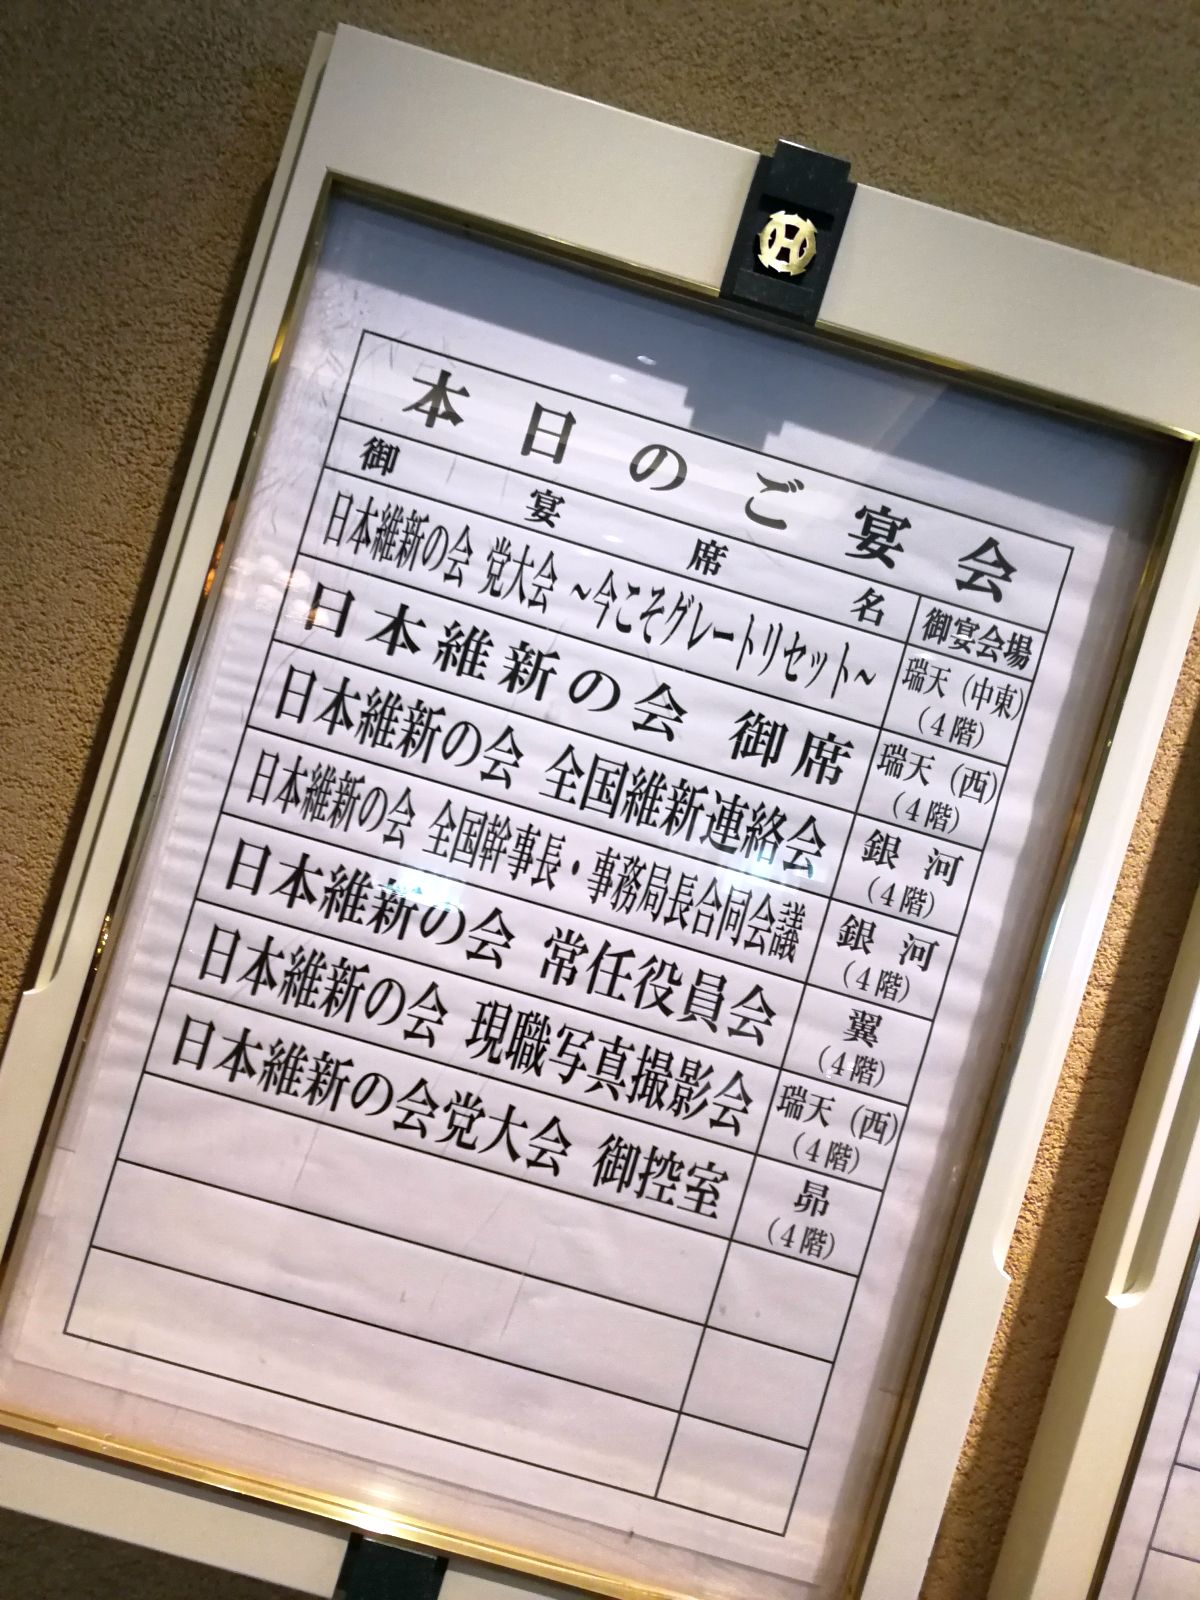 本日のご宴会
御宴席名 御宴会場
日本維新の会 党大会 ~今こそグレートリセット~ 瑞天(中東)
(4階)
日本維新の会 御席 瑞天(西)
(4階)
日本維新の会 全国維新連絡会 銀河
(4階)
日本維新の会 全国幹事長・事務局長合同会議 銀河
(4階)
日本維新の会 常任役員会 翼
(4階)
日本維新の会 現職写真撮影会 瑞天(西)
(4階)
日本維新の会党大会 御控室 昴
(4階)